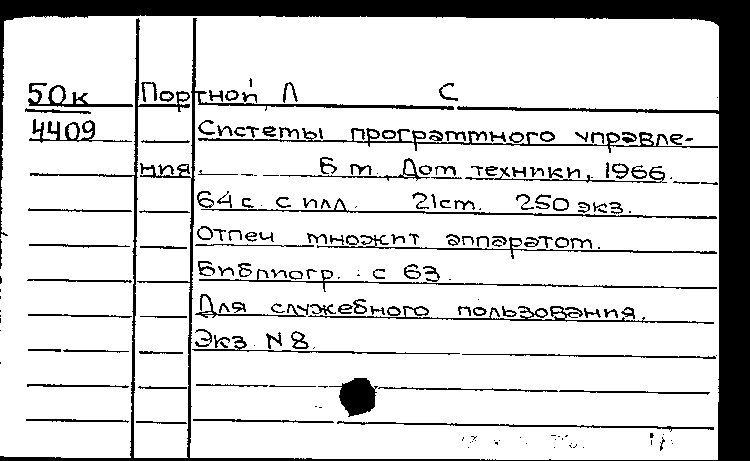 50к Портной Л С
4409 Системы программного управле-
ния. Б м, Дом техники, 1966.
64 с. с илл. 21cm. 250 экз.
Отпеч множит аппаратом.
Библиогр.: с 63.
Для служебного пользования.
Экз N 8.